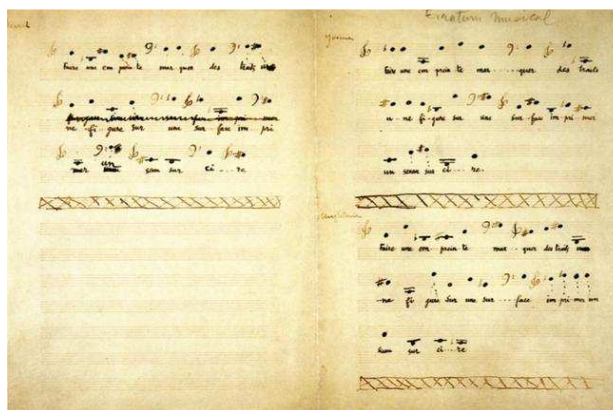 Faire une em prein te mar quer des traits
ne fi gure sur une sur face im pri
mer un sceau sur ci....re
Erratum Musical
Yvonne
Faire une em prein te mar....quer des traits
u ne fi gure sur une sur face im pri mer
un sceau sur ci....re.
Faire une em prein te mar quer des traits
ne fi gure sur une sur....face im pri mer un
sceau sur ci...re